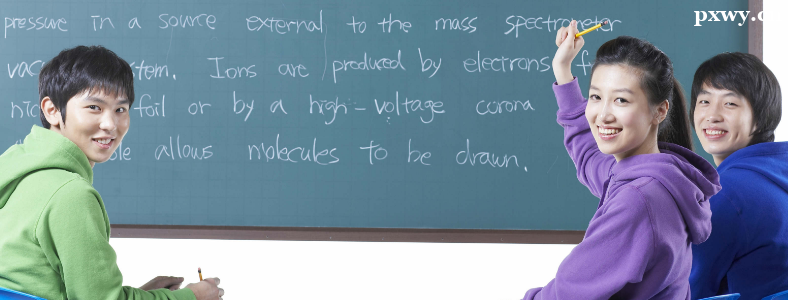 pxwy.
pressure in a source external to the mass spectrometer
vac tem. Ions are produced by electrons f
hic foil or by a high-voltage corona
le allows molecules to be drawn.